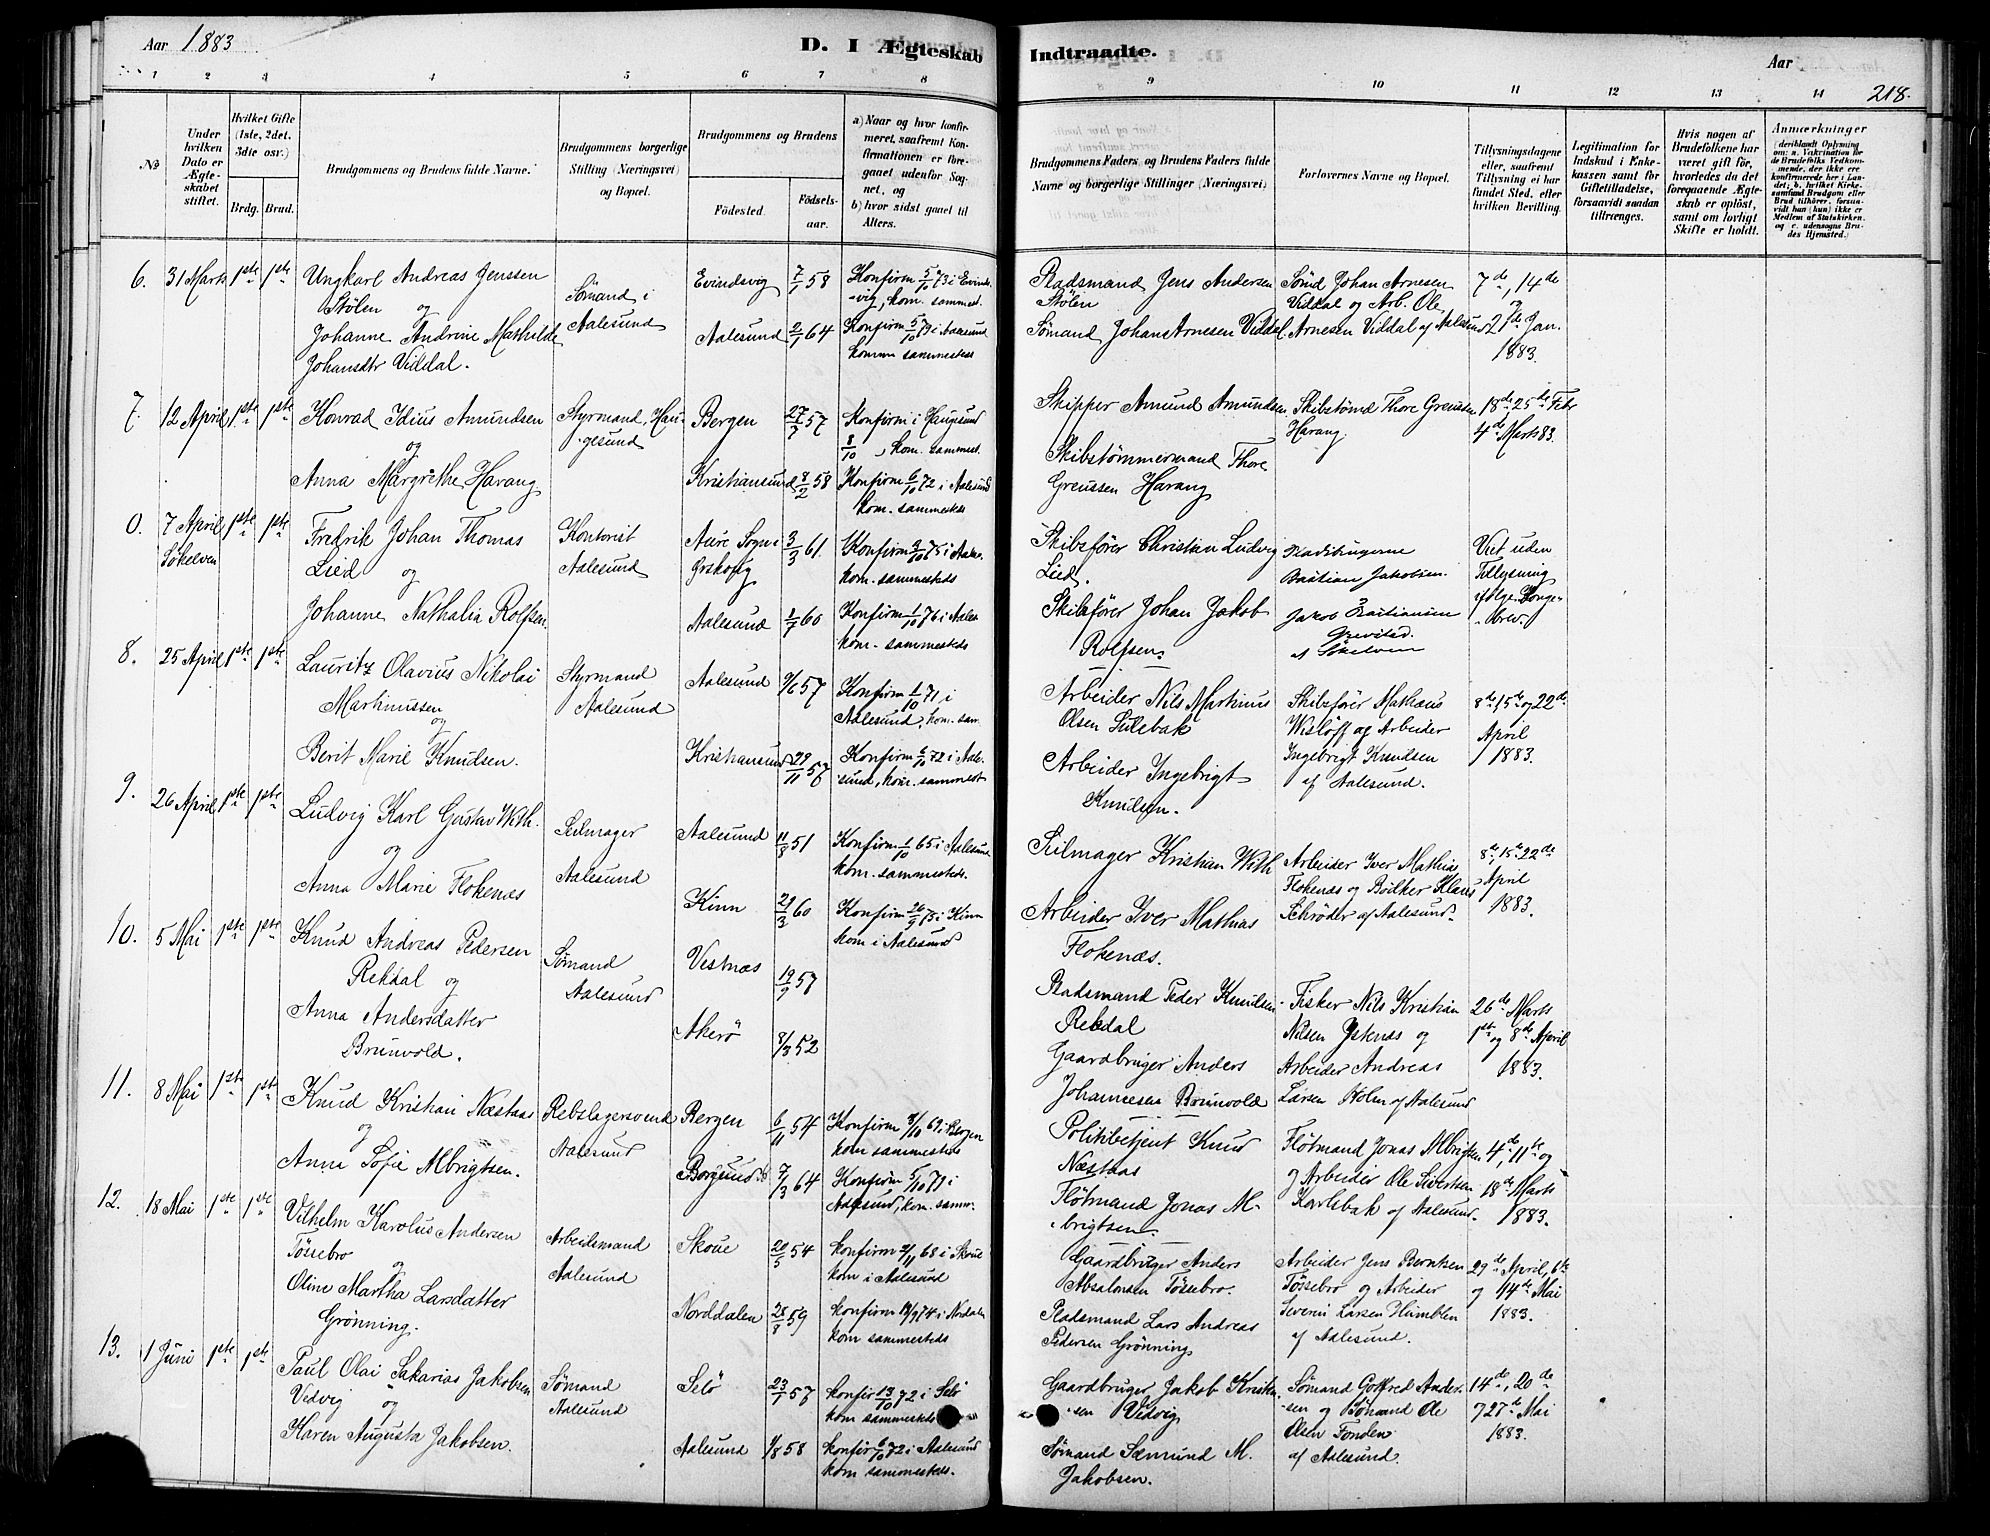 Aar 1883
D. I Ægteskab Indtraadte.
Aar
218.
1 2 3 4 5 6 7 8 9 10 11 12 13 14
№
Under hvilken Dato er Ægteskabet stiftet.
Hvilket Gifte (1ste, 2det, 3die osv.)
Brdg. Brud.
Brudgommens og Brudens fulde Navne.
Brudgommens borgerlige Stilling (Næringsvei) og Bopæl.
Brudgommens og Brudens
Fødested.
Fødselsaar.
a) Naar og hvor konfirmeret, saafremt Konfirmationen er foregaaet udenfor Sognet, og
b) hvor sidst gaaet til Alters.
Brudgommens Faders og Brudens Faders fulde Navne og borgerlige Stillinger (Næringsvei)
Forlovernes Navne og Bopæl.
Tillysningsdagene eller, saafremt Tillysning ei har fundet Sted, efter hvilken Bevilling.
Legitimation for Indskud i Enkekassen samt for Giftetilladelse, forsaavidt saadan tiltrænges.
Hvis nogen af Brudefolkene har været gift før, hvorledes da det foregaaende Ægteskab er opløst, samt om lovligt Skifte er holdt.
Anmærkninger (deriblandt Oplysning om: a. Vakcination for de Brudefolks Vedkommende, der ikke ere konfirmerede her i Landet; b. hvilket Kirkesamfund Brudgom eller Brud tilhører, forsaavidt han (hun) ikke er Medlem af Statskirken, og c. udensogns Brudes Hjemsted.)
6. 31 Marts 1ste 1ste
Ungkarl Andreas Jenssen
Stølen og
Johanne Andrine Mathilde
Johansdtr Viddal.
Sømand i
Aalesund
Evindsvig 7/1 58
Aalesund 2/1 64
Konfirm 5/10 73 i Evinds-
vig, kom. sammest.
Konfirm 5/10 79 i Aalesund
komm sammesteds
Pladsmand Jens Andersen
Stølen
Sømand Johan Arnesen Viddal
Sømd Johan Arnesen
Viddal og Arb. Ole
Arnesen Viddal af Aalesund
7de, 14de
og
21de Jan.
1883.
7. 12 April 1ste 1ste
Konrad Idius Amundsen
og
Anna Margrethe Harang
Styrmand, Hau-
gesund
Bergen 27/7 57
Kristiansund 8/2 58
Konfirm i Haugesund
8/10, kom. sammest.
Konfirm 6/10 72 i Aalesund
kom. sammesteds
Skipper Amund Amundsen
Skibstømmermand Thore
Greussen Harang
Skibstømd Thore Greussen
Harang.
18de 25de Febr
4de Marts 83.
0. 7 April 1ste 1ste
Søkelven
Fredrik Johan Thomas
Lied og
Johanne Nathalia Rolfsen
Kontorist
Aalesund
Aure Sogn i
Ørskoug 3/3 61.
Aalesund 2/7 60
kom. sammesteds
Konfirm 1/10 76 i Aales
kom. sammesteds
Skibsfører Christian Ludvig
Lied.
Skibsfører Johan Jakob
Rolfsen.
Bastian Jakobsen
Jakob Bastiansen
af Søkelven
Viet uden
Tillysning
ifølge Konge-
brev.
8. 25 April 1ste 1ste
Lauritz Olavius Nikolai
Martinussen
og
Berit Marie Knudsen.
Styrmand
Aalesund
Aalesund 9/6 57
Kristiansund 29/11 57
Konfirm 1/10 71 i
Aalesund, kom. sam
Konfirm 6/10 72 i Aale-
sund, kom. sammest
Arbeider Nils Martinus
Olsen Sulebak
Arbeider Ingebrigt
Knudsen.
Skibsfører Mathæus
Wisløff og Arbeider
Ingebrigt Knudsen
af Aalesund.
8de 15de og 22de
April
1883.
9. 26 April 1ste 1ste
Ludvig Karl Gustav With.
og
Anna Marie Flokenæs
Seilmager
Aalesund
Aalesund 11/8 51
Kinn 29/3 60
Konfirm 1/10 65 i Aalesund
kom. sammesteds.
Konfirm 26/9 75 i Kinn
kom i Aalesund
Seilmager Kristian With
Arbeider Iver Mathias
Flokenæs.
Arbeider Iver Mathias
Flokenæs og Bødker Klaus
Schrøder af Aalesund.
8de, 15de 22de
April
1883.
10. 5 Mai 1ste 1ste
Knud Andreas Pedersen
Rekdal og
Anna Andersdatter
Brunvold.
Sømand
Aalesund
Vestnæs 19/9 57
Akerø 8/3 52
Pladsmand Peder Knudsen
Rekdal
Gaardbruger Anders
Johannesen Brunvold
Fisker Nils Kristian
Nilsen Ystenæs og
Arbeider Andreas
Larsen Holm af Aalesund
26de Marts
1ste og 8de April
1883.
11. 8 Mai 1ste 1ste
Knud Kristian Næstaas
og
Anna Sofie Albrigtsen.
Rebslagersvend
Aalesund
Bergen 6/11 54
Borgund 7/3 64
Konfirm 3/10 69 i Bergen
kom sammesteds
Konfirm 5/10 79 i
Aalesund, kom. samm.
Politibetjent Knud
Næstaas
Fløtmand Jonas Al-
brigtsen.
Fløtmand Jonas Albrigtsen
og Arbeider Ole Sivertsen
Karlsbak af Aalesund.
4de, 11te og
18de Marts
1883.
12. 18 Mai 1ste 1ste
Vilhelm Karolus Andersen
Tøssebro
og
Oline Martha Larsdatter
Grønning.
Arbeidsmand
Aalesund
Skoue 20/5 54
Norddalen 28/8 59
konfirm 9/11 68 i Skoue
kom i Aalesund
konfirm 12/9 74 i Nordalen
kom sammesteds
Gaardbruger Anders
Absalonsen Tøssebro.
Pladsmand Lars Andreas
Pedersen Grønning
Arbeider Jens Berntsen
Tøssebro og Arbeider
Severin Larsen Humblen
af Aalesund.
29de April, 6te
og 14de Mai
1883.
13. 1 Juni 1ste 1ste
Paul Olai Sakarias Jakobsen
Vedvig og
Karen Augusta Jakobsen.
Sømand
Aalesund
Selø 23/1 57
Aalesund 1/8 58
konfir 13/10 72 i Selø
kom sammesteds
konfir 6/10 72 i Aalesund
kom sammesteds.
Gaardbruger Jakob Kristen-
sen Vedvig
Sømand Sæmund M.
Jakobsen.
Sømand Gotfred Ander-
sen og Sømand Ole
Olsen Fonden
af Aalesund.
14de, 20de
27de Mai
1883.